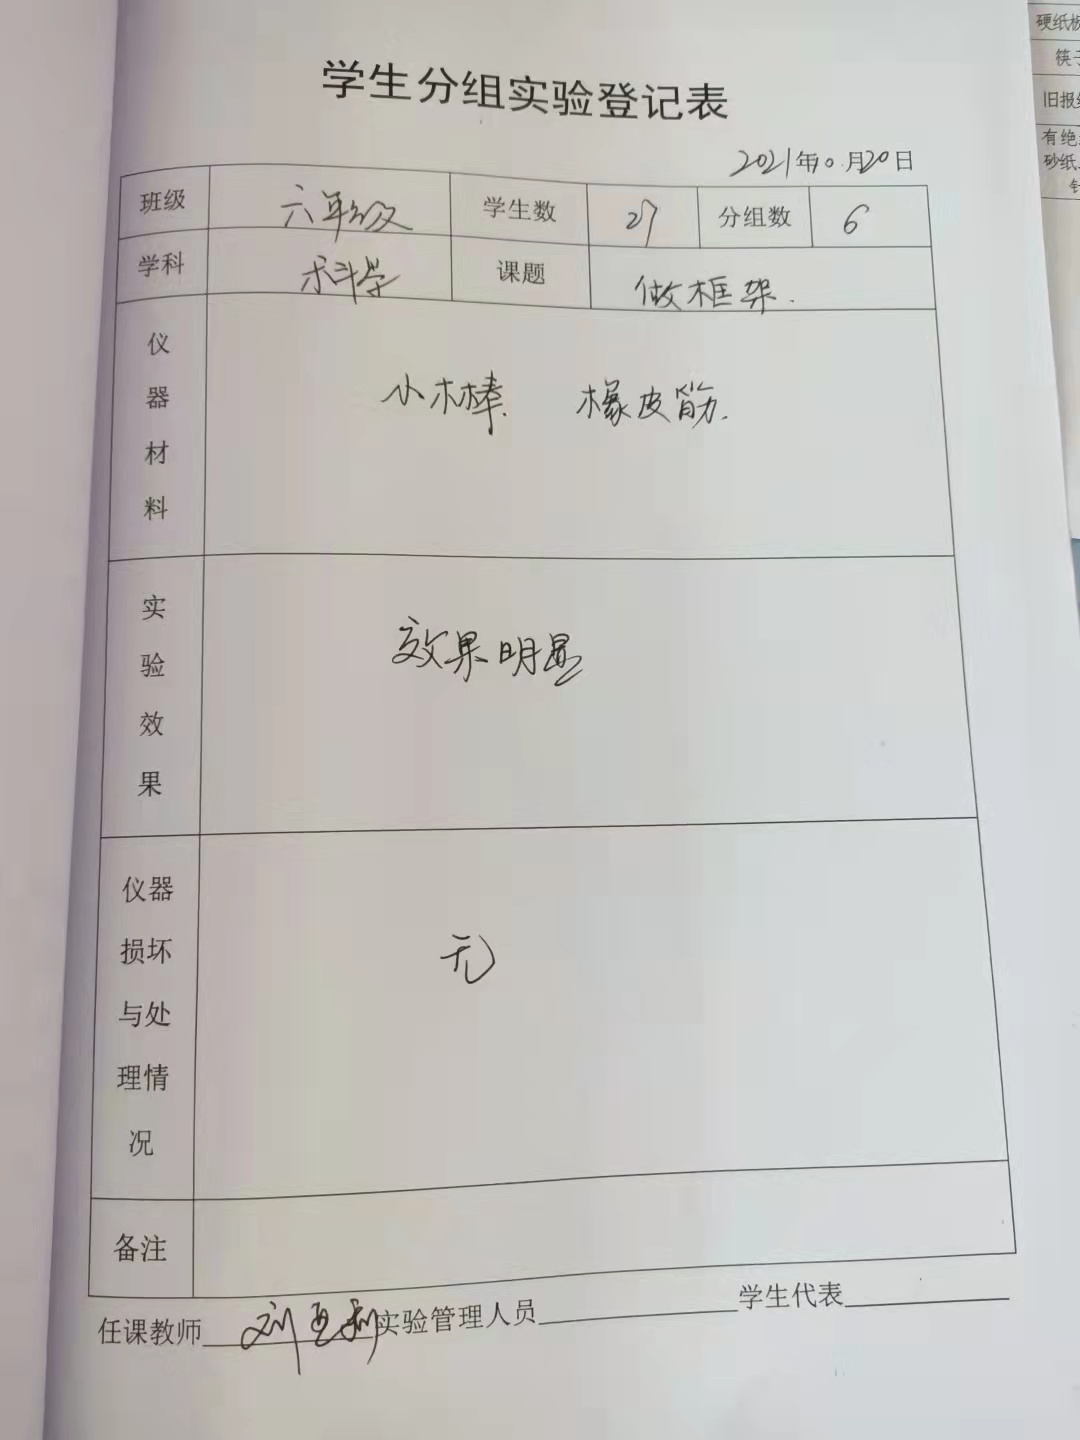 学生分组实验登记表
2021年10月20日
班级 六年级 学生数 27 分组数 6
学科 科学 课题 做框架.
仪器材料 小木棒. 橡皮筋.
实验效果 效果明显
仪器损坏与处理情况 无
备注
任课教师 刘 实验管理人员 学生代表
硬纸板
筷子
旧报纸
有绝
砂纸